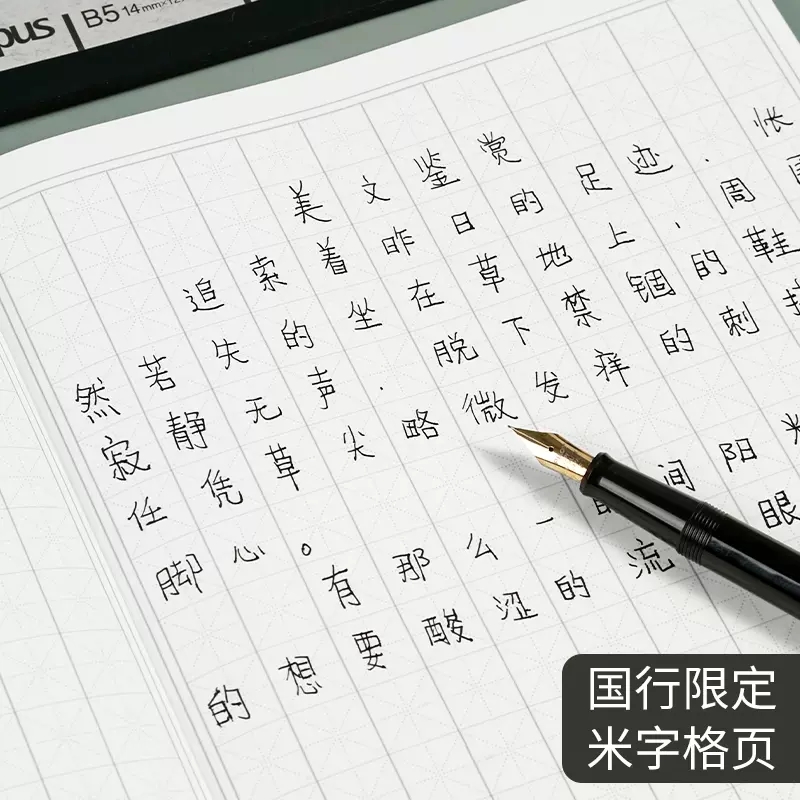 pus B5 14mm×12
美文鉴赏
追索着昨日的足迹，怅
然若失的坐在草地上，周
寂静无声，脱下禁锢的鞋
任凭草尖略微发痒的刺
脚心。
有那么一间阳
的想要酸涩的流眼
国行限定
米字格页